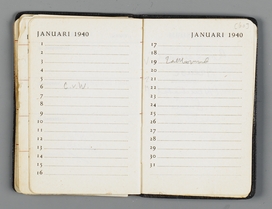 JANUARI 1940
1
2
3
4
5
6
7
8
9
10
11
12
13
14
15
16
JANUARI 1940
17
18
19
20
21
22
23
24
25
26
27
28
29
30
31